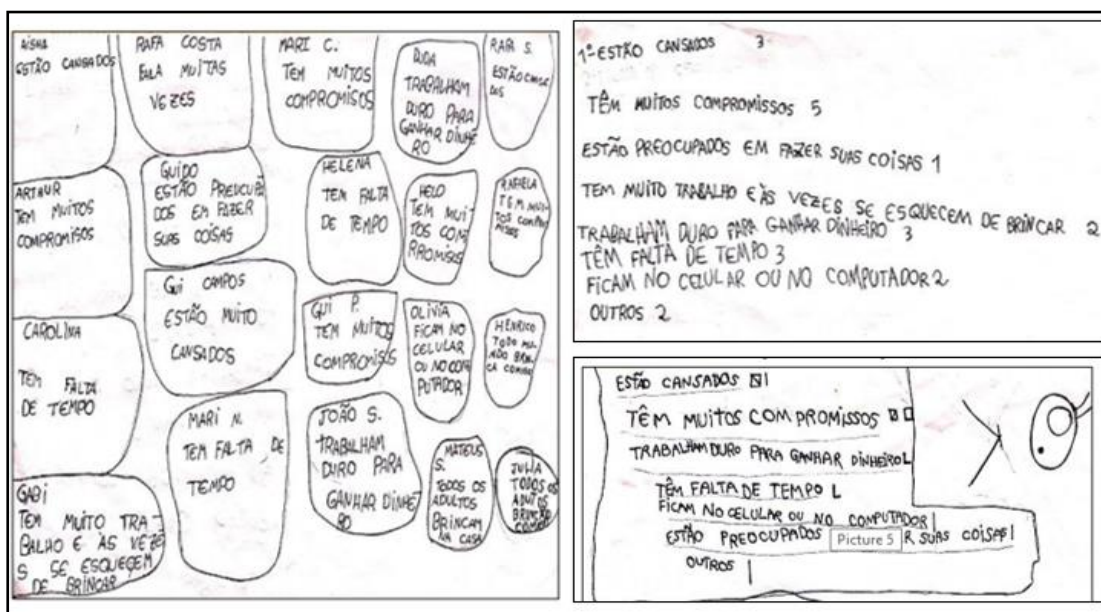 AISHA
ESTÃO CANSADOS
RAFA COSTA
FALA MUITAS
VEZES
MARI C.
TEM MUITOS
COMPROMISOS
DUDA
TRABALHAM
DURO PARA
GANHAR DINHE
RO
RAFA S.
ESTÃO CANSA
DOS
ARTHUR
TEM MUITOS
COMPROMISOS
GUIDO
ESTÃO PREUCUPA
DOS EM FAZER
SUAS COISAS
HELENA
TEM FALTA
DE TEMPO
HELO
TEM MUI
TOS COM
PROMISOS
RAFAELA
TEM MUI
TOS COMPRO
MISSOS
CAROLINA
TEM FALTA
DE TEMPO
GUI CAMPOS
ESTÃO MUITO
CANSADOS
GUI P.
TEM MUITOS
COMPROMISOS
OLIVIA
FICAM NO
CELULAR
OU NO COM
PUTADOR
HENRICO
TODO MU
NDO BRIN
CA COMIGO
GABI
TEM MUITO TRA-
BALHO E ÀS VEZE
S SE ESQUECEM
DE BRINCAR
MARI N.
TEM FALTA DE
TEMPO
JOÃO S.
TRABALHAM
DURO PARA
GANHAR DINHE
RO
MATEUS
S.
TODOS OS
ADULTOS
BRINCAM
NA CASA
JULIA
TODOS OS
ADUTOS
BRINCÃO
COMIGO
1º ESTÃO CANSADOS 3
TÊM MUITOS COMPROMISSOS 5
ESTÃO PREOCUPADOS EM FAZER SUAS COISAS 1
TEM MUITO TRABALHO E ÀS VEZES SE ESQUECEM DE BRINCAR 2
TRABALHAM DURO PARA GANHAR DINHEIRO 3
TÊM FALTA DE TEMPO 3
FICAM NO CELULAR OU NO COMPUTADOR 2
OUTROS 2
ESTÃO CANSADOS
TÊM MUITOS COMPROMISSOS
TRABALHAM DURO PARA GANHAR DINHEIRO
TÊM FALTA DE TEMPO
FICAM NO CELULAR OU NO COMPUTADOR
ESTÃO PREOCUPADOS Picture 5 R SUAS COISAS
OUTROS